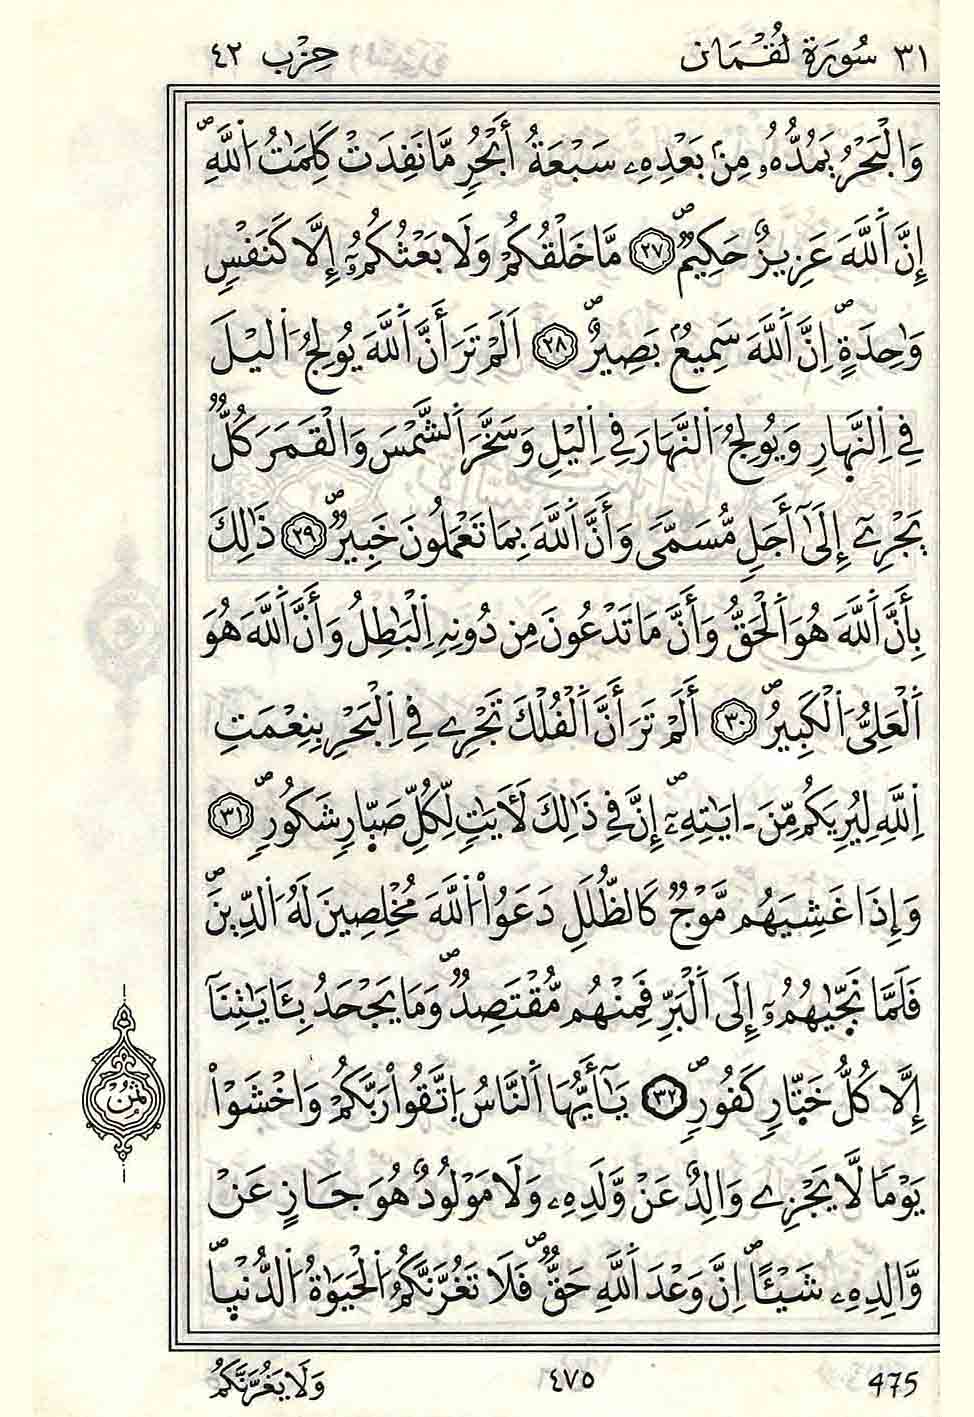 ٣١ سُورَة لُقْمَان حِزْب ٤٢
وَالْبَحْرُ يَمُدُّهُۥ مِنۢ بَعْدِهِۦ سَبْعَةُ أَبْحُرٍ مَّا نَفِدَتْ كَلِمَٰتُ اُللَّهِۖ
إِنَّ اَللَّهَ عَزِيزٌ حَكِيمٌۖ ٢٧ مَّا خَلْقُكُمْ وَلَا بَعْثُكُمُۥٓ إِلَّا كَنَفْسٍ
وَٰحِدَةٍۖ اِنَّ اَللَّهَ سَمِيعٌۢ بَصِيرٌۖ ٢٨ اَلَمْ تَرَ أَنَّ اَللَّهَ يُولِجُ اُليْلَ
فِي اِلنَّهِارِ وَيُولِجُ اُلنَّهَارَ فِي اِليْلِ وَسَخَّرَ اَلشَّمْسَ وَالْقَمَرَ كُلٌّ
يَجْرِےٓ إِلَىٰٓ أَجَلٍ مُّسَمّٗى وَأَنَّ اَللَّهَ بِمَا تَعْمَلُونَ خَبِيرٌۖ ٢٩ ذَٰلِكَ
بِأَنَّ اَللَّهَ هُوَ اَلْحَقُّ وَأَنَّ مَا تَدْعُونَ مِن دُونِهِ اِلْبَٰطِلُ وَأَنَّ اَللَّهَ هُوَ
اَلْعَلِيُّ اُلْكَبِيرُۖ ٣٠ أَلَمْ تَرَ أَنَّ اَلْفُلْكَ تَجْرِے فِي اِلْبَحْرِ بِنِعْمَتِ
اِللَّهِ لِيُرِيَكُم مِّنَ ـ ايَٰتِهِۦٓۖ إِنَّ فِي ذَٰلِكَ لَأٓيَٰتٍ لِّكُلِّ صَبّ۪ارٍ شَكُورٍۖ ٣١
وَإِذَا غَشِيَهُم مَّوْجٌ كَالظُّلَلِ دَعَوُاْ اُللَّهَ مُخْلِصِينَ لَهُ اُلدِّينَۖ
فَلَمَّا نَجّ۪يٰهُمُۥٓ إِلَى اَلْبَرِّ فَمِنْهُم مُّقْتَصِدٌۖ وَمَا يَجْحَدُ بِـَٔايَٰتِنَآ
إِلَّا كُلُّ خَتّ۪ارٍ كَفُورٍۖ ٣٢ يَٰٓأَيُّهَا اَلنَّاسُ اُتَّقُواْ رَبَّكُمْ وَاخْشَوْاْ
يَوْماً لَّا يَجْزِے وَالِدٌ عَنْ وَّلَدِهِۦ وَلَا مَوْلُودٌ هُوَ جَازٍ عَنْ
وَّالِدِهِۦ شَيْـًٔاۖ اِنَّ وَعْدَ اَللَّهِ حَقٌّۖ فَلَا تَغُرَّنَّكُمُ اُلْحَيَوٰةُ اُلدُّنْي۪اۖ
ثُمُن
وَلَا يَغُرَّنَّكُم ٤٧٥ 475